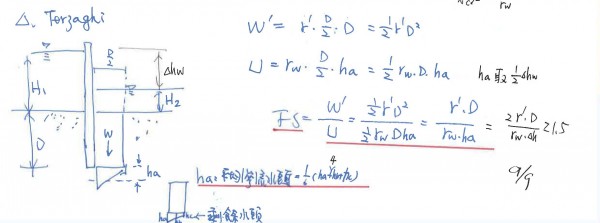 rw
△. Terzaghi
D/2
Δhw
H₁
H₂
D
W
ha
W' = r'·D/2·D = 1/2 r'D²
U = rw·D/2·ha = 1/2 rw·D·ha
ha 取 1/2 Δhw
FS = W'/U = (1/2 r'D²)/(1/2 rw D ha) = (r'·D)/(rw·ha) = (2r'·D)/(rw·Δh) ≥ 1.5
9/9
←剩餘水頭